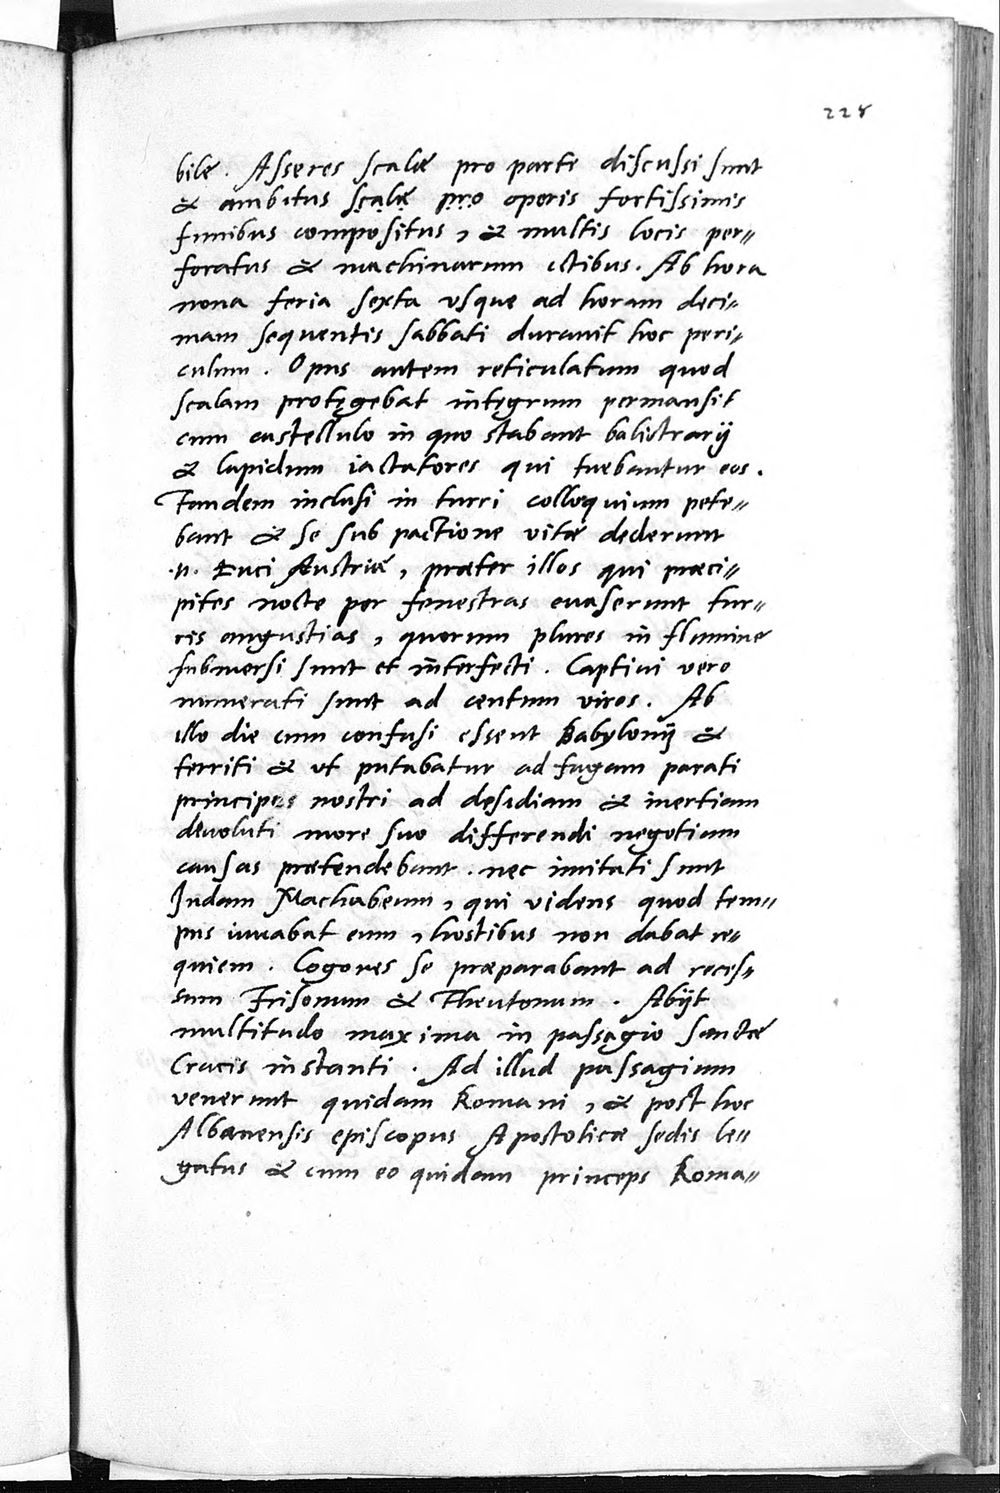 228
bile. Asseres scalæ pro parte discussi sunt
& ambitus scalę pro operis fortissimis
funibus compositus, & multis locis per=
foratus & machinarum ictibus. Ab hora
nona feria sexta vsque ad horam deci=
mam sequentis sabbati durauit hoc peri=
culum. Opus autem reticulatum quod
scalam protęgebat intęgrum permansit
cum castellulo in quo stabant balistrarij
& lapidum iactatores qui tuebantur eos.
Tandem inclusi in turri colloquium pete=
bant & se sub pactione vitæ dederunt
.n. Duci Austriæ, præter illos qui præci=
pites nocte per fenestras euaserunt tur=
ris angustias, quorum plures in flumine
submersi sunt et interfecti. Captiui vero
numerati sunt ad centum viros. Ab
illo die cum confusi essent Babylonij &
territi & vt putabatur ad fugam parati
principes nostri ad desidiam & inertiam
deuoluti more suo differendi negotium
causas prætendebant. nec imitati sunt
Judam Machabeum, qui videns quod tem=
pus iuuabat eum, hostibus non dabat re=
quiem. Cogones se præparabant ad reces=
sum Frisonum & Theutonum. Abijt
multitudo maxima in passagio sanctæ
Crucis instanti. Ad illud passagium
venerunt quidam Romani, & post hoc
Albanensis episcopus Apostolicæ sedis le=
gatus & cum eo quidam princeps Roma=